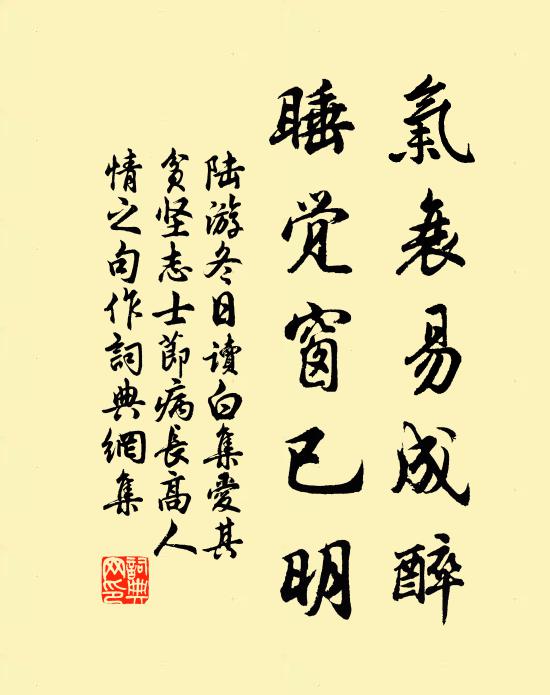 氣衰易成醉
睡觉窗已明
陆游冬日读白集爱其
贫坚志士節病長高人
情之句作詞典網集
詞典
网印